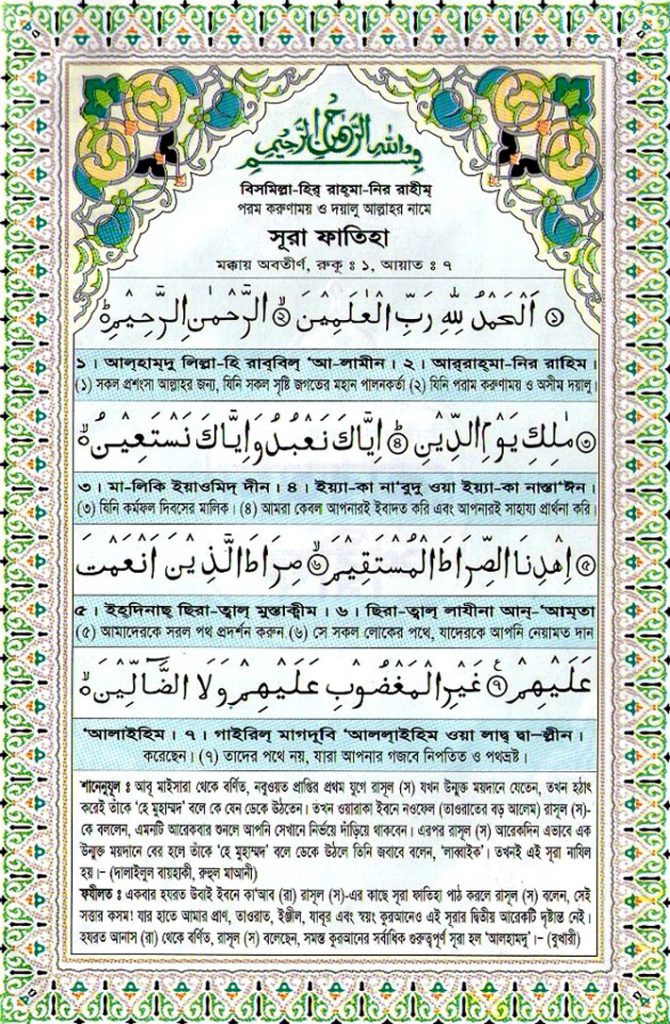 بسم الله الرحمن الرحيم
বিসমিল্লা-হির্ রাহ্‌মা-নির রাহীম্
পরম করুণাময় ও দয়ালু আল্লাহর নামে
সূরা ফাতিহা
মক্কায় অবতীর্ণ, রুকূ : ১, আয়াত : ৭
① اَلْحَمْدُ لِلّٰهِ رَبِّ الْعٰلَمِيْنَ ② الرَّحْمٰنِ الرَّحِيْمِ
১। আল্‌হাম্‌দু লিল্লা-হি রাব্বিল্ ‘আ-লামীন। ২। আর্‌রাহ্‌মা-নির রাহিম।
(১) সকল প্রশংসা আল্লাহর জন্য, যিনি সকল সৃষ্টি জগতের মহান পালনকর্তা (২) যিনি পরাম করুণাময় ও অসীম দয়ালু।
③ مٰلِكِ يَوْمِ الدِّيْنِ ④ اِيَّاكَ نَعْبُدُ وَاِيَّاكَ نَسْتَعِيْنُ
৩। মা-লিকি ইয়াওমিদ্ দীন। ৪। ইয়্যা-কা না‘বুদু ওয়া ইয়্যা-কা নাস্তা‘ঈন।
(৩) যিনি কর্মফল দিবসের মালিক। (৪) আমরা কেবল আপনারই ইবাদত করি এবং আপনারই সাহায্য প্রার্থনা করি।
⑤ اِهْدِنَا الصِّرَاطَ الْمُسْتَقِيْمَ ⑥ صِرَاطَ الَّذِيْنَ اَنْعَمْتَ
৫। ইহ্‌দিনাছ্ ছিরা-ত্বাল্ মুস্তাক্বীম। ৬। ছিরা-ত্বাল্ লাযীনা আন্-‘আম্‌তা
(৫) আমাদেরকে সরল পথ প্রদর্শন করুন (৬) সে সকল লোকের পথে, যাদেরকে আপনি নেয়ামত দান
عَلَيْهِمْ ⑦ غَيْرِ الْمَغْضُوْبِ عَلَيْهِمْ وَلَا الضَّآلِّيْنَ
‘আলাইহিম। ৭। গাইরিল্ মাগদূবি ‘আলল্‌াইহিম ওয়া লাদ্ব দ্বা-ল্লীন।
করেছেন। (৭) তাদের পথে নয়, যারা আপনার গজবে নিপতিত ও পথভ্রষ্ট।
শানেনুযূল : আবূ মাইসারা থেকে বর্ণিত, নবুওয়ত প্রাপ্তির প্রথম যুগে রাসূল (স) যখন উন্মুক্ত ময়দানে যেতেন, তখন হঠাৎ
করেই তাঁকে ‘হে মুহাম্মদ’ বলে কে যেন ডেকে উঠতেন। তখন ওয়ারাকা ইবনে নওফেল (তাওরাতের বড় আলেম) রাসূল (স)-
কে বললেন, এমনটি আরেকবার শুনলে আপনি সেখানে নির্ভয়ে দাঁড়িয়ে থাকবেন। এরপর রাসূল (স) আরেকদিন এভাবে এক
উন্মুক্ত ময়দানে বের হলে তাঁকে ‘হে মুহাম্মদ’ বলে ডেকে উঠলে তিনি জবাবে বলেন, ‘লাব্বাইক’। তখনই এই সূরা নাযিল
হয়।- (দালাইলুল বায়হাকী, রুহুল মাআনী)
ফযীলত : একবার হযরত উবাই ইবনে কা‘আব (রা) রাসূল (স)-এর কাছে সূরা ফাতিহা পাঠ করলে রাসূল (স) বলেন, সেই
সত্তার কসম! যার হাতে আমার প্রাণ, তাওরাত, ইঞ্জীল, যাবূর এবং স্বয়ং কুরআনেও এই সূরার দ্বিতীয় আরেকটি দৃষ্টান্ত নেই।
হযরত আনাস (রা) থেকে বর্ণিত, রাসূল (স) বলেছেন, সমস্ত কুরআনের সর্বাধিক গুরুত্বপূর্ণ সূরা হল ‘আলহামদু’।- (বুখারী)